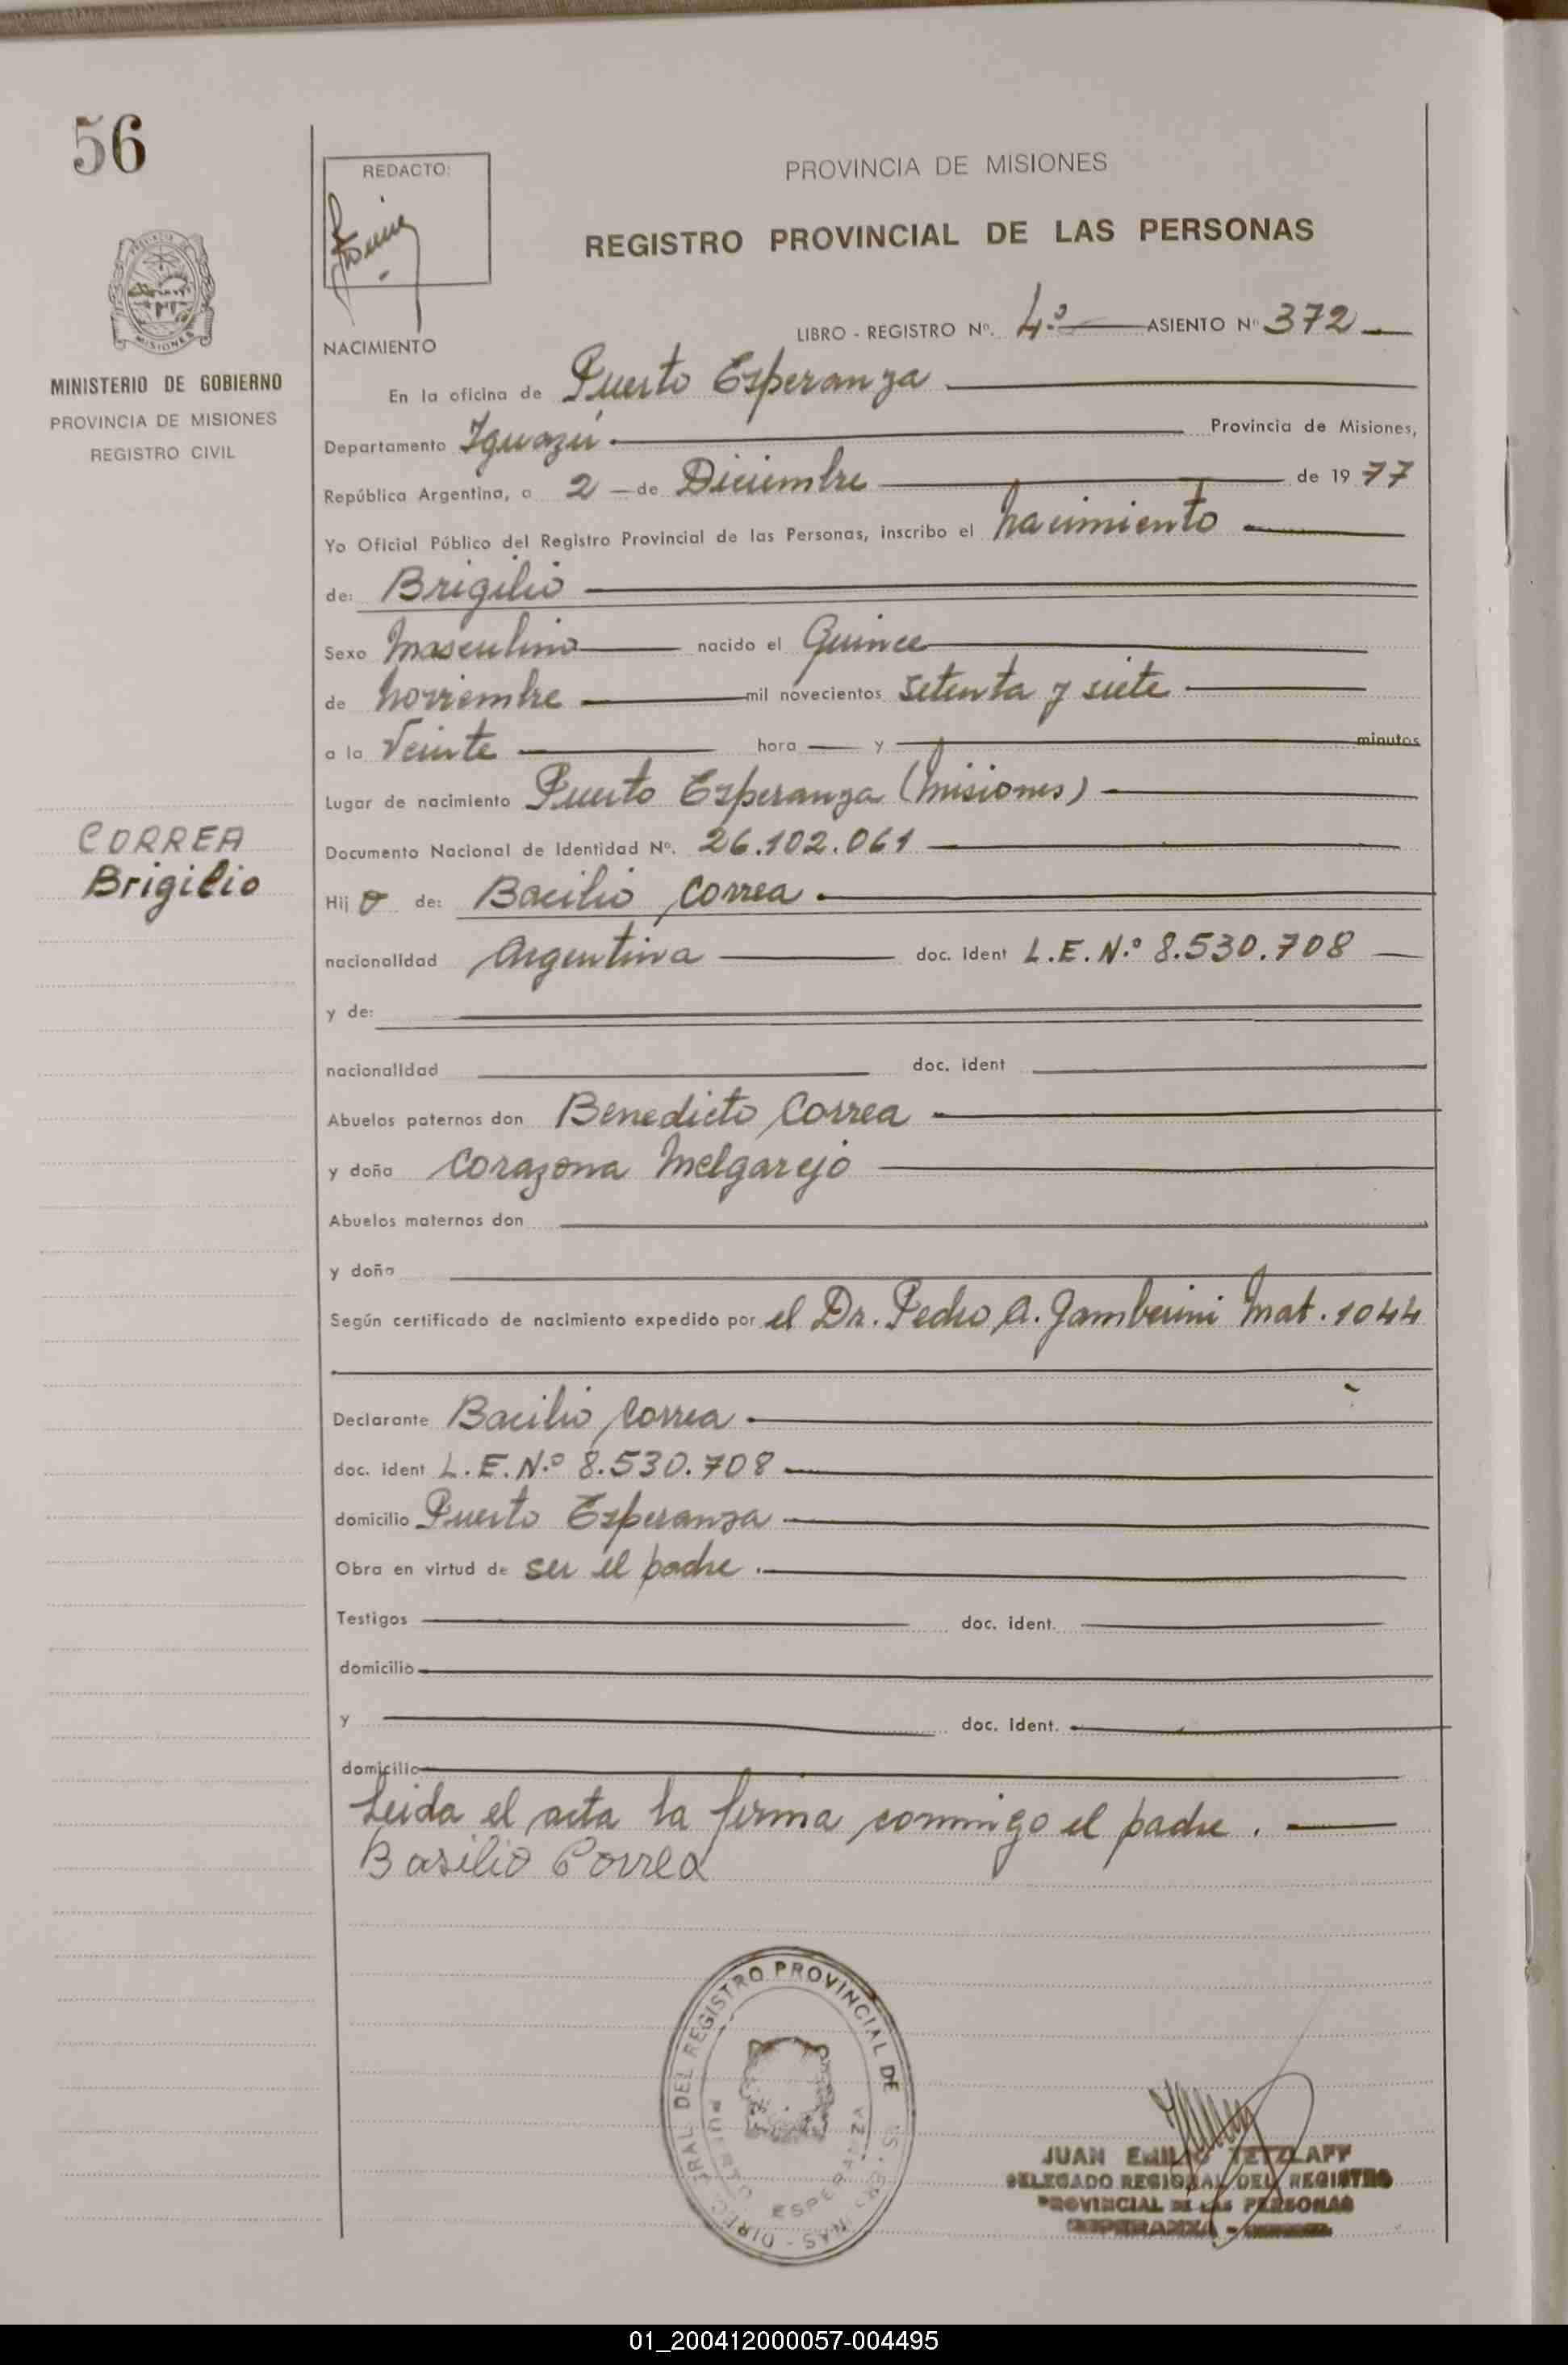 56
REDACTO:
PROVINCIA DE MISIONES
REGISTRO PROVINCIAL DE LAS PERSONAS
MISIONES
MINISTERIO DE GOBIERNO
PROVINCIA DE MISIONES
REGISTRO CIVIL
LIBRO - REGISTRO Nº. 4º ASIENTO Nº 372
NACIMIENTO
En la oficina de Puerto Esperanza
Departamento Iguazú Provincia de Misiones,
República Argentina, a 2 de Diciembre de 1977
Yo Oficial Público del Registro Provincial de las Personas, inscribo el nacimiento
de: Brigilio
Sexo Masculino nacido el Quince
de noviembre mil novecientos setenta y siete
a la Veinte hora y minutos
Lugar de nacimiento Puerto Esperanza (Misiones)
Documento Nacional de Identidad Nº. 26.102.061
CORREA
Brigilio
Hijo de: Bacilio Correa
nacionalidad Argentina doc. ident L.E.N.º 8.530.708
y de:
nacionalidad doc. ident
Abuelos paternos don Benedicto Correa
y doña Corazona Melgarejo
Abuelos maternos don
y doña
Según certificado de nacimiento expedido por el Dr. Pedro A. Gamberini Mat. 1044
Declarante Bacilio Correa
doc. ident L.E.N.º 8.530.708
domicilio Puerto Esperanza
Obra en virtud de ser el padre.
Testigos doc. ident.
domicilio
y doc. ident.
domicilio
Leida el acta la firma conmigo el padre.
Basilio Correa
DEL REGISTRO PROVINCIAL DE
PUERTO ESPERANZA
JUAN EMILIO TETZLAFF
DELEGADO REGIONAL DEL REGISTRO
PROVINCIAL DE LAS PERSONAS
ESPERANZA -
01_200412000057-004495